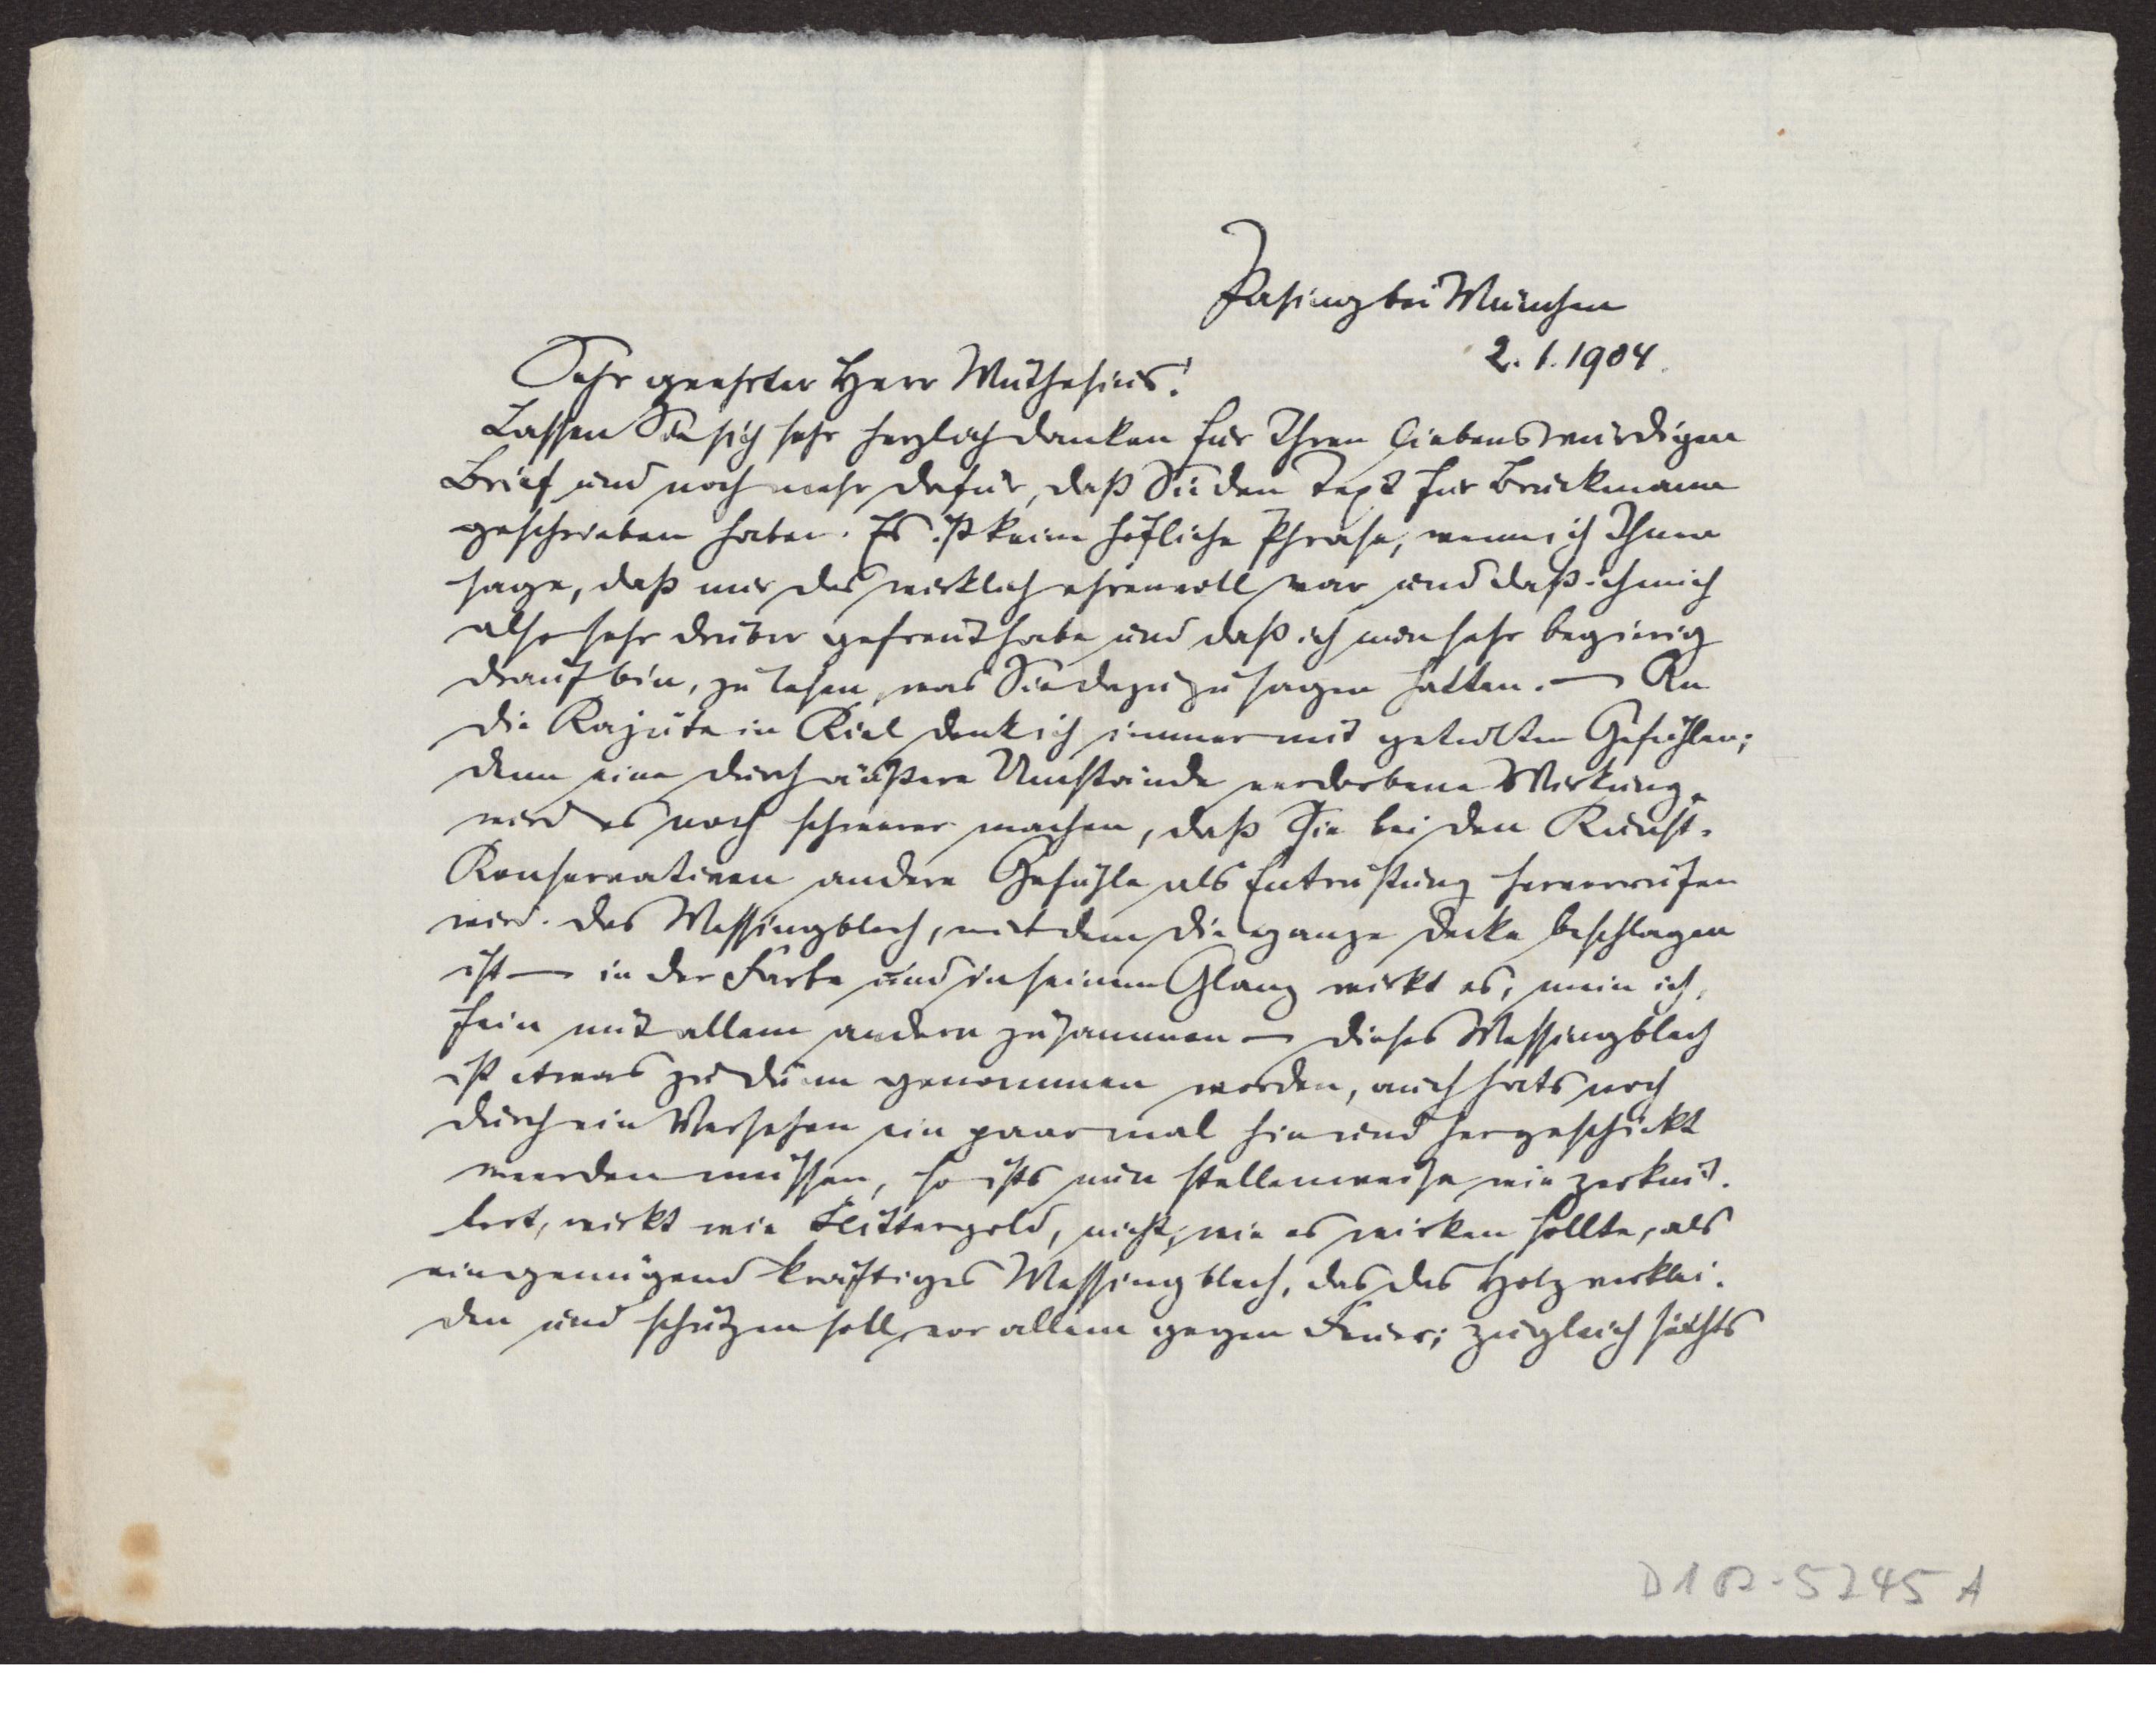 Pasing bei München
2. 1. 1904.
Sehr geehrter Herr Muthesius!
Lassen Sie sich sehr herzlich danken für Ihren liebenswürdigen
Brief und noch mehr dafür, daß Sie den Text für Bruckmann
geschrieben haben. Es ist keine höfliche Phrase, wenn ich Ihnen
sage, daß mir das wirklich ehrenvoll war und daß ich mich
also sehr drüber gefreut habe und daß ich nun sehr begierig
drauf bin, zu lesen, was Sie dazu zu sagen hatten. — An
die Kajüte in Kiel denk ich immer mit geteilten Gefühlen;
denn eine durch äußere Umstände verdorbene Wirkung
wird es noch schwerer machen, daß sie bei den Kunst-
Konservativen andere Gefühle als Entrüstung hervorrufen
wird. Das Messingblech, mit dem die ganze Decke beschlagen
ist — in der Farbe und in seinem Glanz wirkt es, mein ich,
fein mit allem andern zusammen — dieses Messingblech
ist etwas zu dünn genommen worden, auch hats noch
durch ein Versehen ein paarmal hin und hergeschickt
werden müssen, so ists nun stellenweise wie zerknit-
tert, wirkt wie Flittergold, nicht, wie es wirken sollte, als
ein genügend kräftiges Messingblech, das das Holz verklei-
den und schützen soll, vor allem gegen Feuer; zugleich
D102-5245 A